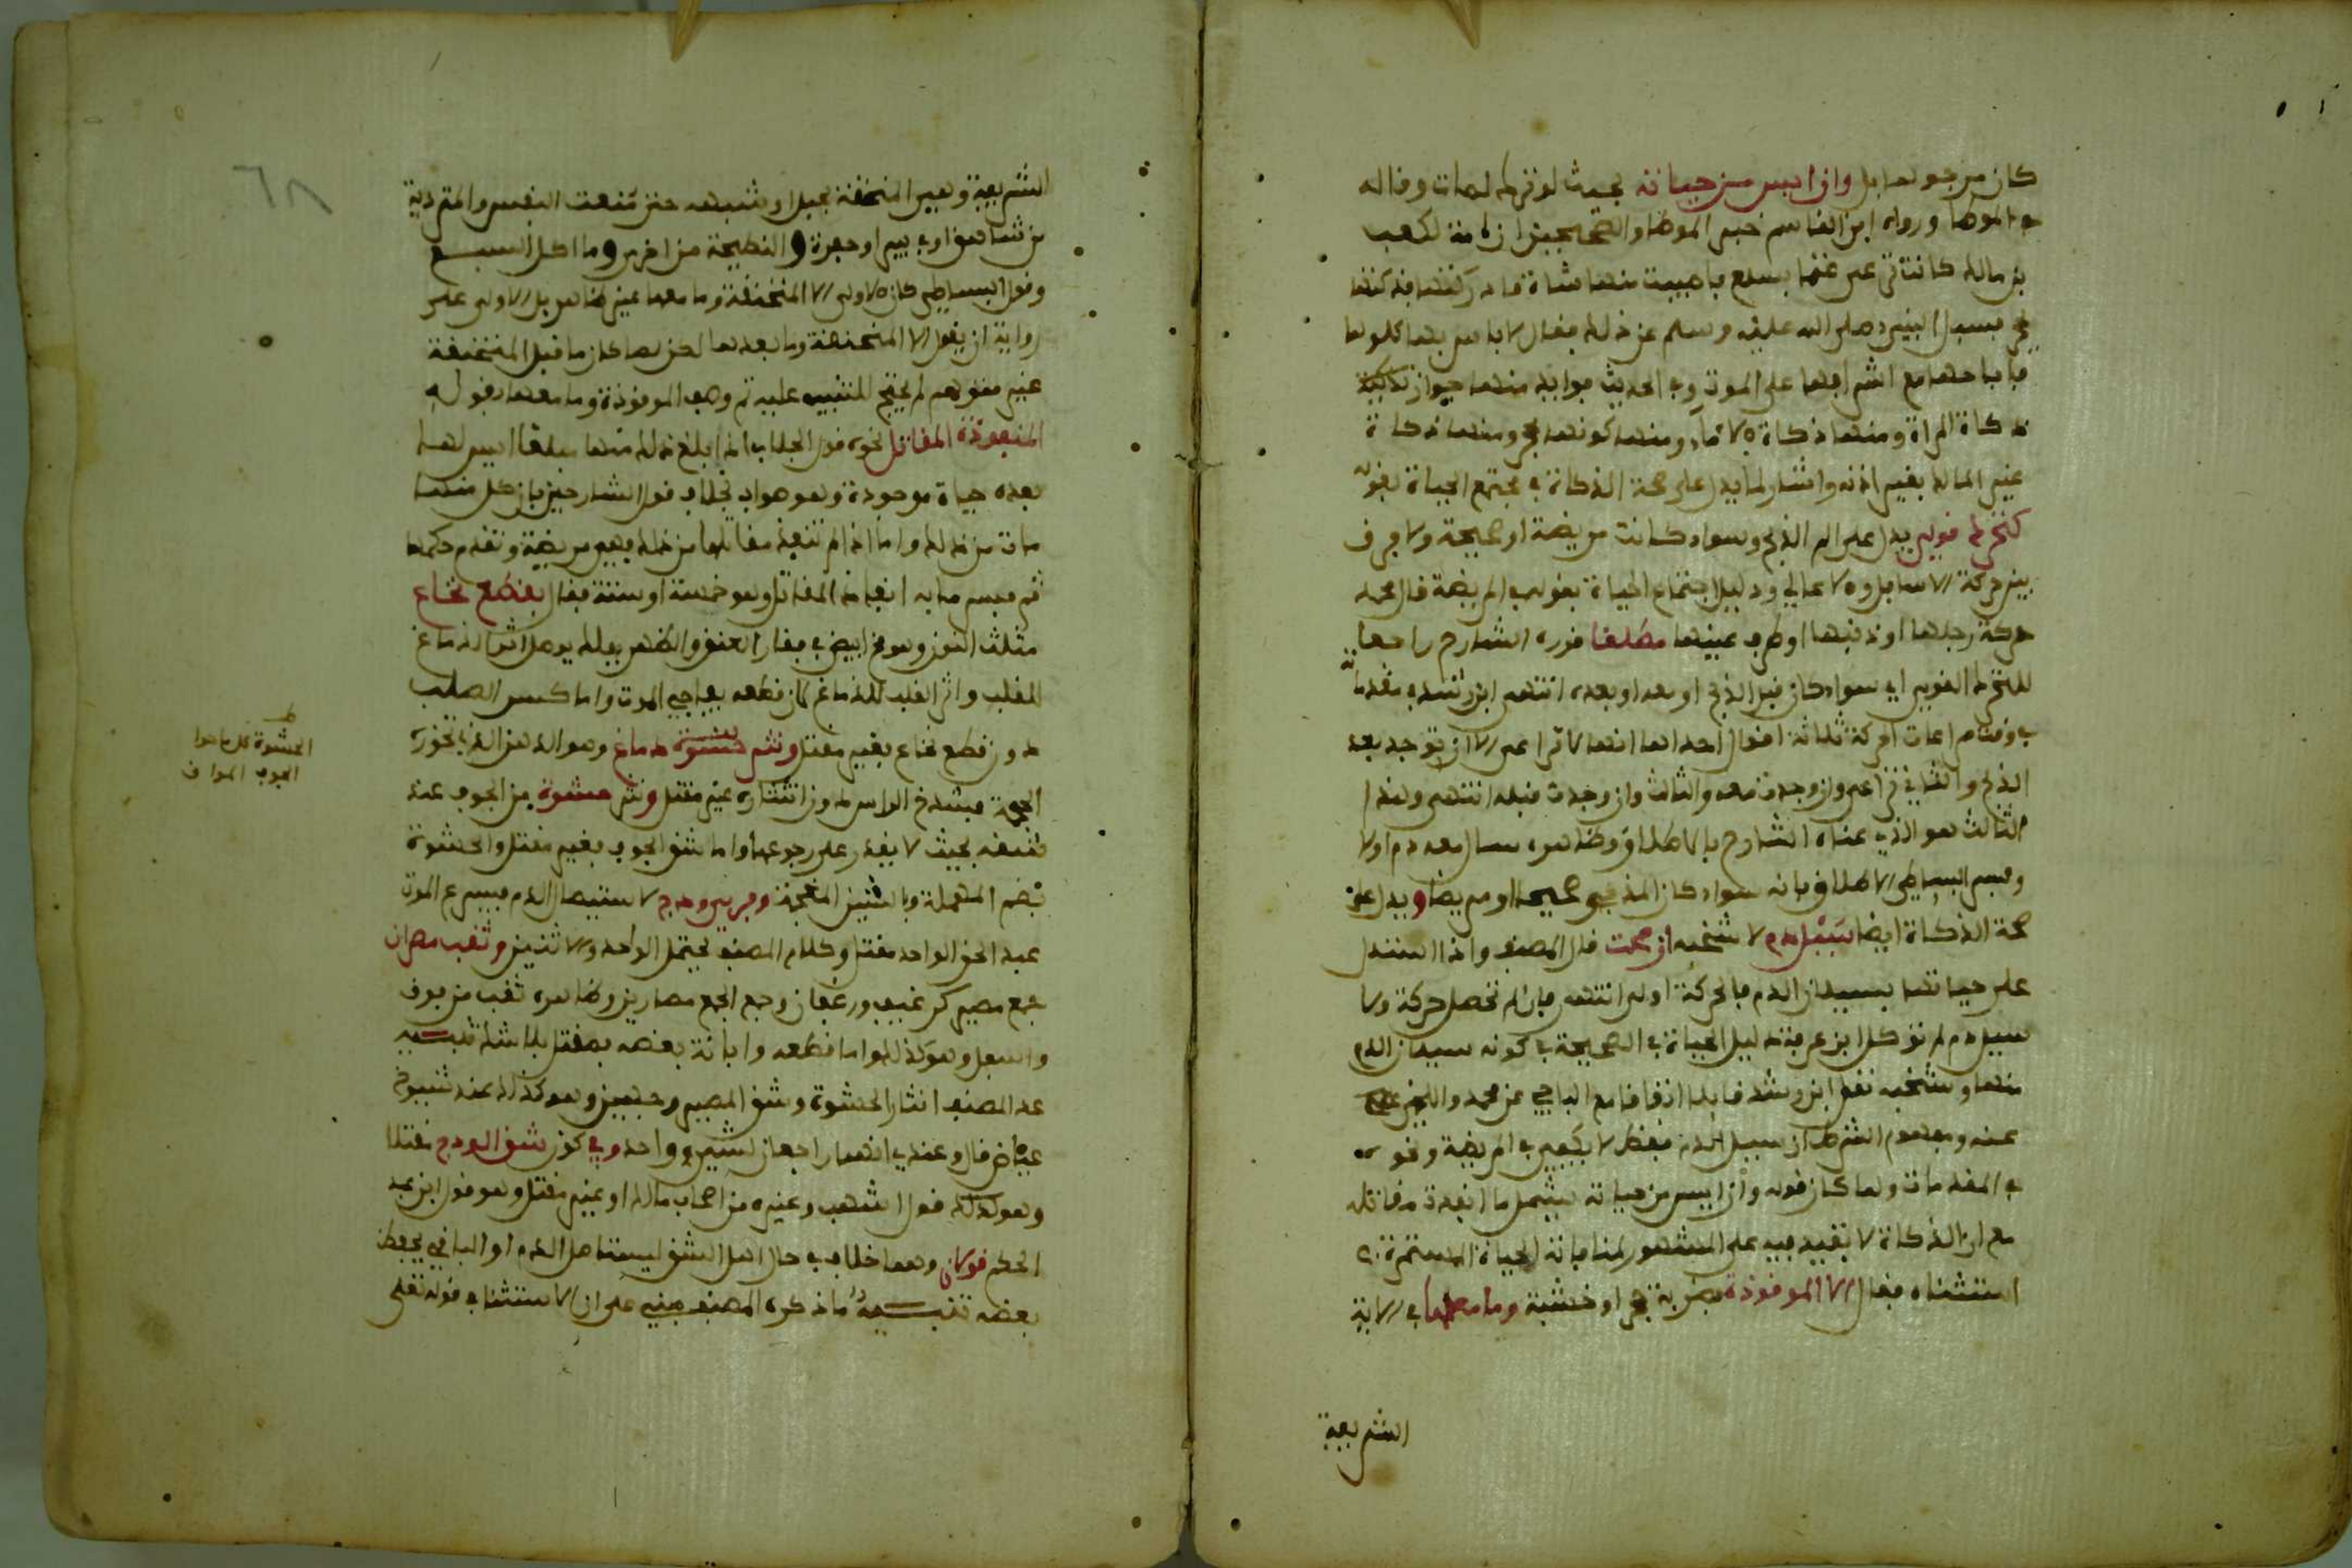 كان مرجوا بل وان ايس من حياته بحيث لو ترك لمات وقاله
في الموطا ورواه ابن القاسم خبر الموطا والصحيحين ان امة لكعب
بن مالك كانت ترعى غنما بسلع فاصيبت منها شاة فادركتها فذكتها
بحجر فسئل النبي صلى الله عليه وسلم عن ذلك فقال لا باس بها كلوها
فاباحها مع اشرافها على الموت وفي الحديث فوايد منها جواز تذكية
ذكاة المراة ومنها ذكاة الامة ومنها كونها بحجر ومنها ذكاة
غير المالك بغير اذنه واشار لما يدل على صحة الذكاة في مجتمع الحياة بقوله
كتحرك قوي يدل على الم الذبح وسواء كانت مريضة او صحيحة ولا فرق
بين حركة الاسافل والاعالي ودليل اجتماع الحياة بقوله في المريضة قال محمد
حركة رجلها او ذنبها او طرف عينها مطلقا قرره الشارح راجعا
للتحرك القوي اي سواء كان قبل الذبح او معه او بعده انتهى ابن رشد في مقدماته
في وقت مراعات الحركة ثلاثة اقوال احدها انها لا تراعى الا ان توجد بعد
الذبح والثاني تراعى وان وجدت معه والثالث وان وجدت قبله انتهى وهذا
الثالث هو الذي عناه الشارح بالاطلاق وظاهره سال معه دم اولا
وفسر البساطي الاطلاق بانه سواء كان المذبوح صحيحا او مريضا ويدل على
صحة الذكاة ايضا سيل دم لا شخبه ان صحت قال المصنف واذا استدل
على حياتها بسيلان الدم فالحركة اولى انتهى فان لم تحصل حركة ولا
سيل دم لم توكل ابن عرفة دليل الحياة في الصحيحة في كونه سيلان الدم
منها وشخبه نقل ابن رشد قايلا اتفاقا مع الباجي عن محمد واللخمي
عنه ومفهوم الشرط ان سيل الدم فقط لا يكفي في المريضة وقوله
في المقدمات ولما كان قوله وان ايس من حياته يشمل ما انفذت مقاتله
مع ان الذكاة لا تفيد فيه على المشهور لمنافاته الحياة المستمرة
استثناه فقال الا الموقوذة بضربة بحجر او خشبة وما معها في الاية
الشريفة
الشريفة وهي المنخنقة بحبل او شبهه حتى منعت النفس والمتردية
من شاهق او في بير او حفرة والنطيحة من اخرى وما اكل السبع
وقول البساطي كان الاولى الا المنخنقة وما معها غير ظاهر بل الاولى على
رواية ان يقول الا المنخنقة وما بعدها لكن لما كان ما قبل المنخنقة
غير متوهم لم يحتج للتنبيه عليه ثم وصف الموقوذة وما معها بقوله
المنفوذة المقاتل نحوه قول الجلاب اذا بلغ ذلك منها مبلغا ليس لها
بعده حياة موجودة وهو صواب بخلاف قول الشارحين بان كل منها
مات من ذلك واما اذا لم تنفذ مقاتلها من ذلك فهي مريضة وتقدم حكمها
ثم فسر ما به انفاذ المقاتل وهو خمسة او ستة فقال بقطع نخاع
مثلث النون وهو مخ ابيض في فقار العنق والظهر يوصل اثر الدماغ
للقلب واثر القلب للدماغ كان قطعه يفاجي الموت واما كسر الصلب
دون قطع نخاع فغير مقتل ونثر حشوة دماغ وهو الدهن الذي تحوزه
الجمجمة فشدخ الراس دون انتشاره غير مقتل ونثر حشوة من الجوف عند
شقه بحيث لا يقدر على رجوعها واما شق الجوف فغير مقتل والحشوة
بضم المهملة وبالشين المعجمة وفري ودج لاستيصال الدم فيسرع الموت
عبد الحق الواحد مقتل وكلام المصنف يحتمل الواحد والاثنين وثقب مصران
جمع مصير كرغيف ورغفان وجمع الجمع مصارين وظاهره ثقب من فوق
واسفل وهو كذلك واما قطعه وابانة بعضه فمقتل بلا شك تنبيه
عد المصنف انثار الحشوة وشق المصير وجهين وهو كذلك عند شيوخ
عياض قال وعندي انهما راجعان لشيء واحد وفي كون شق الودج مقتلا
وهو كذلك قول اشهب وغيره من اصحاب مالك او غير مقتل وهو قول ابن عبد
الحكم قولان وهما خلاف في حال هل الشق ليستاصل الدم او الباقي يحفظ
بعضه تنبيه ما ذكره المصنف مبني على ان الاستثنا في قوله تعلى
ط
الحشوة كل ما حوا
الجوف المواق
٦٨